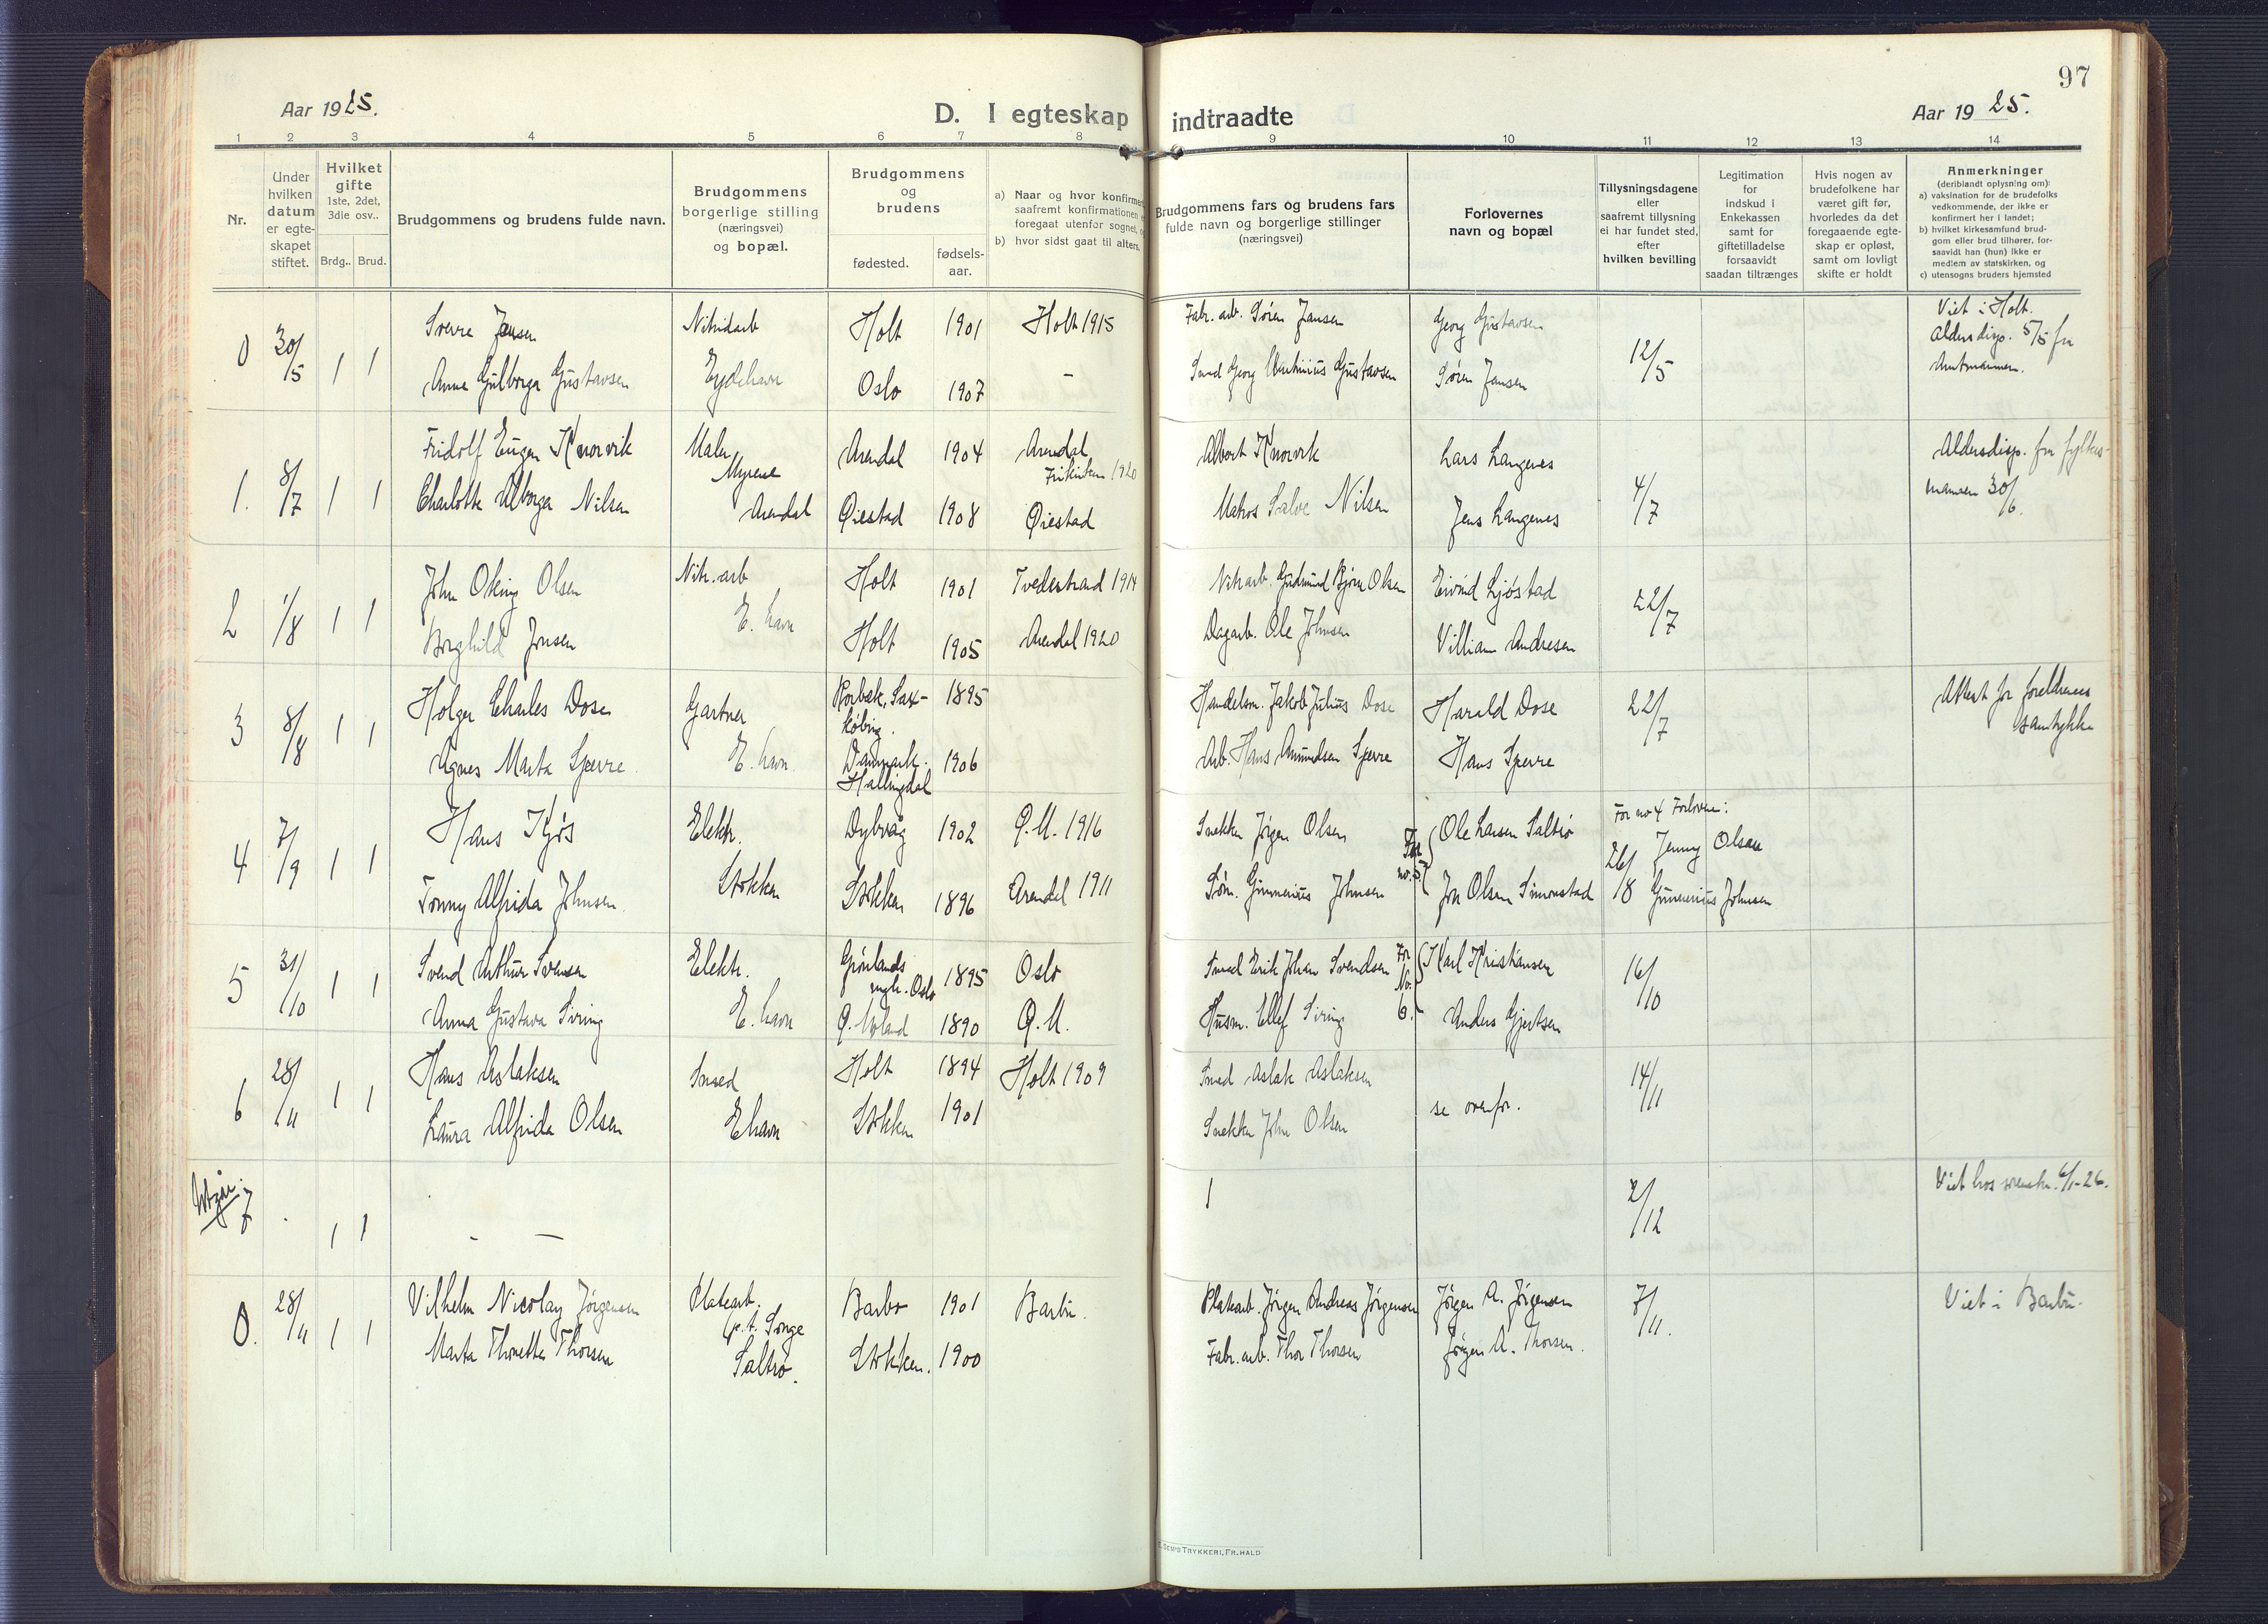 Aar 1925.
D. I egteskap indtraadte
Aar 1925.
97
1 2 3 4 5 6 7 8 9 10 11 12 13 14
Nr.
Under
hvilken
datum
er egte-
skapet
stiftet.
Hvilket
gifte
1ste, 2det,
3die osv..
Brdg.. Brud.
Brudgommens og brudens fulde navn.
Brudgommens
borgerlige stilling
(næringsvei)
og bopæl.
Brudgommens
og
brudens
fødested.
fødsels-
aar.
a) Naar og hvor konfirmer
saafremt konfirmationen
foregaat utenfor sognet,
b) hvor sidst gaat til alters.
Brudgommens fars og brudens fars
fulde navn og borgerlige stillinger
(næringsvei)
Forlovernes
navn og bopæl
Tillysningsdagene
eller
saafremt tillysning
ei har fundet sted,
efter
hvilken bevilling
Legitimation
for
indskud i
Enkekassen
samt for
giftetilladelse
forsaavidt
saadan tiltrænges
Hvis nogen av
brudefolkene har
været gift før,
hvorledes da det
foregaaende egte-
skap er opløst,
samt om lovligt
skifte er holdt
Anmerkninger
(deriblandt oplysning om):
a) vaksination for de brudefolks
vedkommende, der ikke er
konfirmert her i landet;
b) hvilket kirkesamfund brud-
gom eller brud tilhører, for-
saavidt han (hun) ikke er
medlem av statskirken, og
c) utensogns bruders hjemsted
0 30/5 1 1 Sverre Jensen Nitridarb Holt 1901 Holt 1915 Fabr. arb. Søren Jensen Georg Gustavsen 12/5 Viet i Holt.
Aldersdisp. 5/5 fra
Amtmannen.
Anna Gulborga Gustavsen Eydehavn Oslo 1907 - Smed Georg Gustavsen Søren Jensen
1. 8/7 1 1 Fridolf Eugen Knorvik Maler Arendal 1904 Arendal Albert Knorvik Lars Langenes 4/7 Aldersdisp. fra fylkes-
mannen 30/6.
Myrene Frikirken 1920
Charlotte Alborga Nilsen Arendal Øiestad 1908 Øiestad Matros Salve Nilsen Jens Langenes
2 1/8 1 1 John Olsen Nitr. arb Holt 1901 Tvedestrand 1914 Nitr arb. Gudmund Bjørn Olsen Eivind Ljøstad 22/7
Borghild Jonsen E. havn Holt 1905 Arendal 1920 Dagarb. Ole Johnsen Villiam Andresen
3 8/8 1 1 Holger Charles Dose Gartner Sax- 1895 Handelsm. Jakob Julius Dose Harald Dose 22/7 Attest for foreldrenes
samtykke
købing.
Agnes Marta Sperre E. havn. Danmark. 1906 Arb. Hans Amundsen Sperre Hans Sperre
Hallingdal
4 7/9 1 1 Hans Kjøs Elektr. Dybvåg 1902 Ø.M. 1916 Snekker Jørgen Olsen For no. 5 { Ole Larsen Saltrø For no 4 Forlovere:
Jenny Olsen
Tonny Alfrida Johnsen Stokken Stokken 1896 Arendal 1911 Søm. Gunnerius Johnsen Jon Olsen Simonstad 26/8 Gunnerius Johnsen
5 31/10 1 1 Svend Arthur Svensen Elektr. Grønlands 1895 Oslo Smed Erik Johan Svendsen For No. 6. { Karl Kristiansen 16/10
mgh. Oslo
Anna Gustava Siring E. havn Ø. Moland 1890 Ø.M. Husm. Ellef Siring Anders Gjertsen
6 28/11 1 1 Hans Aslaksen Smed Holt 1894 Holt 1909 Smed Aslak Aslaksen se ovenfor. 14/11
Laura Alfrida Olsen Ehavn Stokken 1901 Snekker John Olsen
Utgår.
7 . 1 1 - - 1 2/12 Viet hos sorenskr. 6/1-26.
0. 28/11 1 1 Vilhelm Nicolay Jørgensen Platearb. Barbo 1901 Barbu. Platearb. Jørgen Andreas Jørgensen Jørgen A. Jørgensen 7/11. Viet i Barbu.
p.t. Songe
Marta Thonette Thorsen Saltrø. Stokken. 1900 Fabr. arb. Thor Thorsen Jørgen A. Thorsen.
SEM'S TRYKKERI, FR. HALD